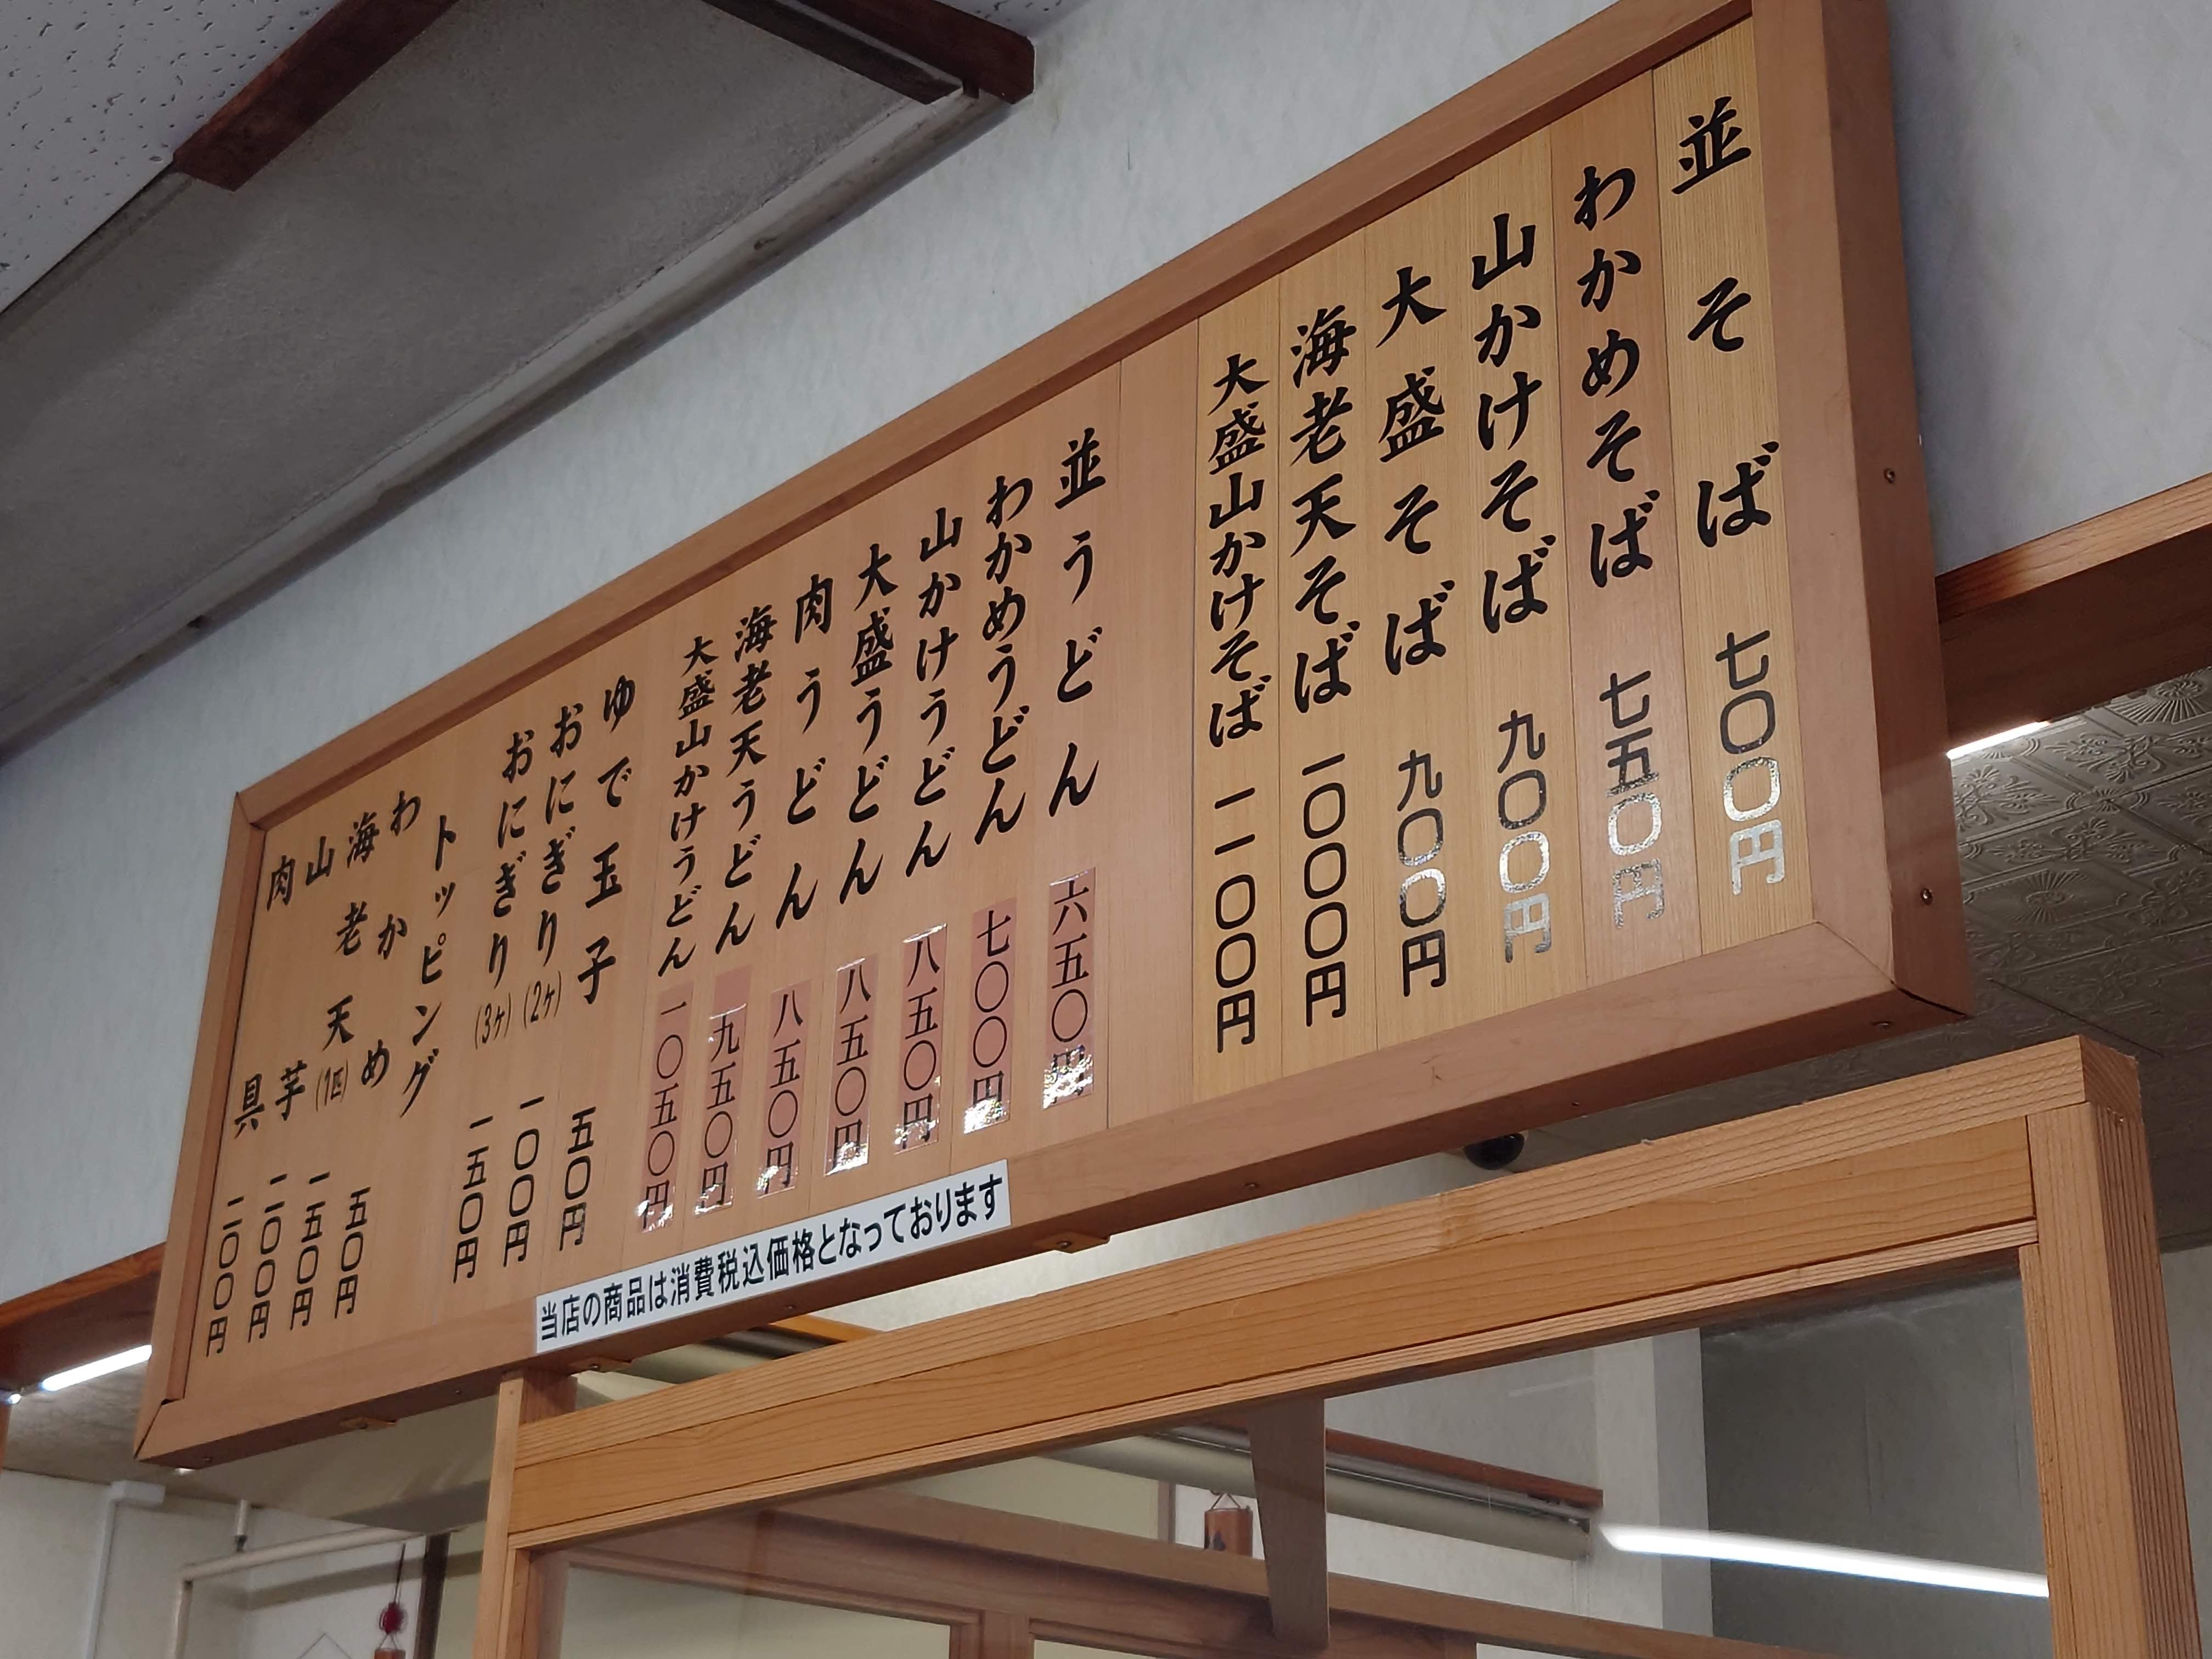 並そば 七〇〇円
わかめそば 七五〇円
山かけそば 九〇〇円
大盛そば 九〇〇円
海老天そば 一〇〇〇円
大盛山かけそば 一一〇〇円
並うどん 六五〇円
わかめうどん 七〇〇円
山かけうどん 八五〇円
大盛うどん 八五〇円
肉うどん 八五〇円
海老天うどん 九五〇円
大盛山かけうどん 一〇五〇円
ゆで玉子 五〇円
おにぎり(2ヶ) 一〇〇円
おにぎり(3ヶ) 一五〇円
トッピング
わかめ 五〇円
海老天(1匹) 一五〇円
山芋 二〇〇円
肉具 二〇〇円
当店の商品は消費税込価格となっております